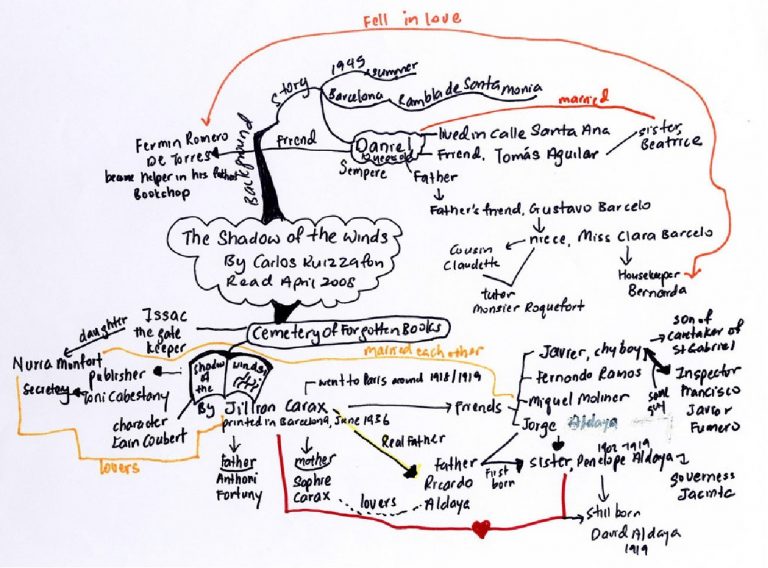 Fell in love
1945 summer
Story
Barcelona Rambla de Santa monia
married
Background
Fermin Romero
De Torres
became helper in his father
Bookshop
Friend
Daniel
Sempere
lived in Calle Santa Ana
Friend, Tomás Aguilar
sister,
Beatrice
Father
Father's friend, Gustavo Barcelo
niece, Miss Clara Barcelo
Cousin
Claudette
tutor
Monsier Roquefort
Housekeeper
Bernarda
The Shadow of the Winds
By Carlos Ruizzafon
Read April 2008
Cemetery of Forgotten Books
Issac
the gate
keeper
daughter
Nuria Monfort
Secretary
Publisher
Toni Cabestany
married each other
shadow
of the
winds
character
Lain Coubert
By Jillian Carax
printed in Barcelona, June 1936
went to Paris around 1918/1919
Friends
Javier, chyboy
Fernando Ramos
Miquel Moliner
Jorge Aldaya
son of
caretaker of
St Gabriel
same
guy
Inspector
Francisco
Javier
Fumero
lovers
Father
Anthoni
Fortuny
mother
Sophie
Carax
Real Father
lovers
Father
Ricardo
Aldaya
First
born
1902-1919
sister, Penelope Aldaya
Governess
Jacinta
Still born
David Aldaya
1919